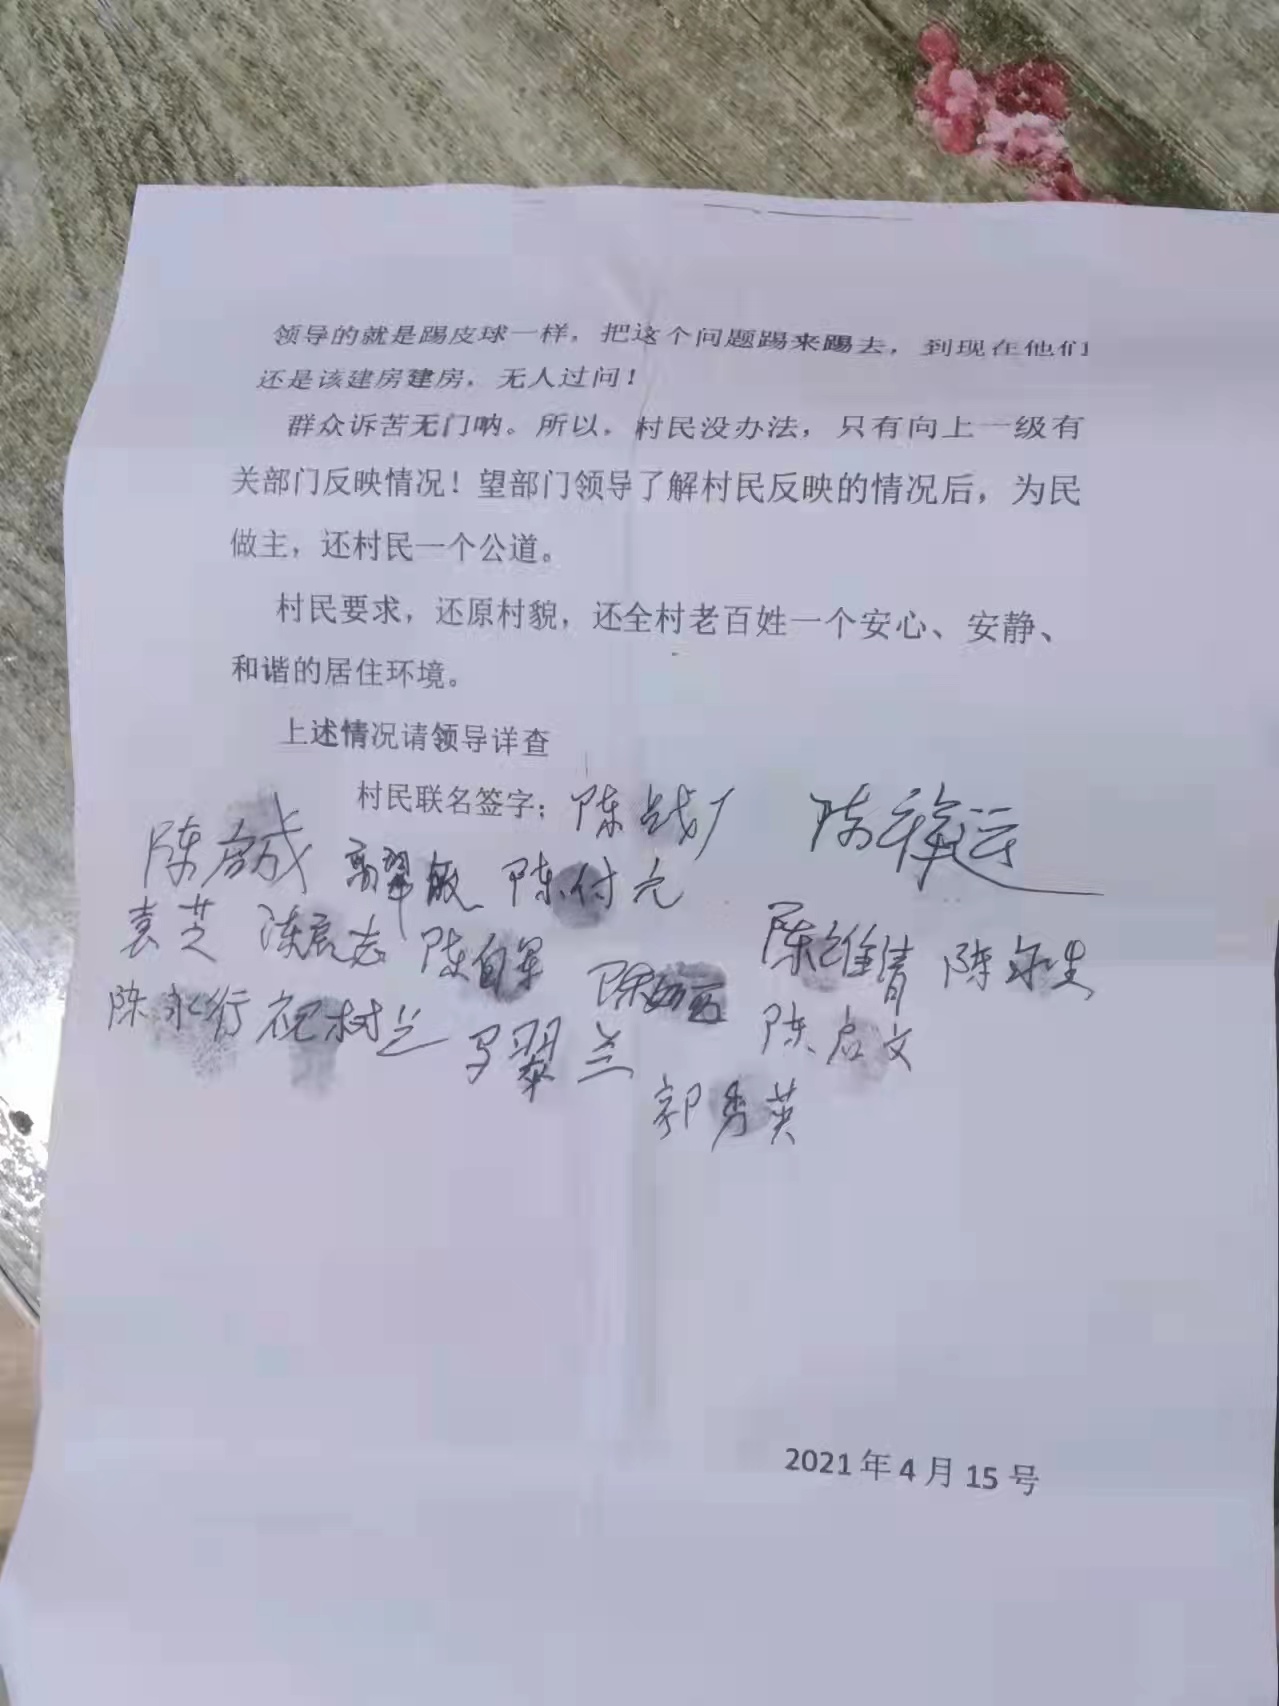 领导的就是踢皮球一样，把这个问题踢来踢去，到现在他们
还是该建房建房，无人过问！
群众诉苦无门呐。所以，村民没办法，只有向上一级有
关部门反映情况！望部门领导了解村民反映的情况后，为民
做主，还村民一个公道。
村民要求，还原村貌，还全村老百姓一个安心、安静、
和谐的居住环境。
上述情况请领导详查
村民联名签字：陈战厂 陈祥运
陈 成 翠敏 陈付元
袁芝 陈 志 陈自军 陈维清 陈 生
陈永行 祝树兰 马翠兰 陈启文
郭秀英
2021年4月15号